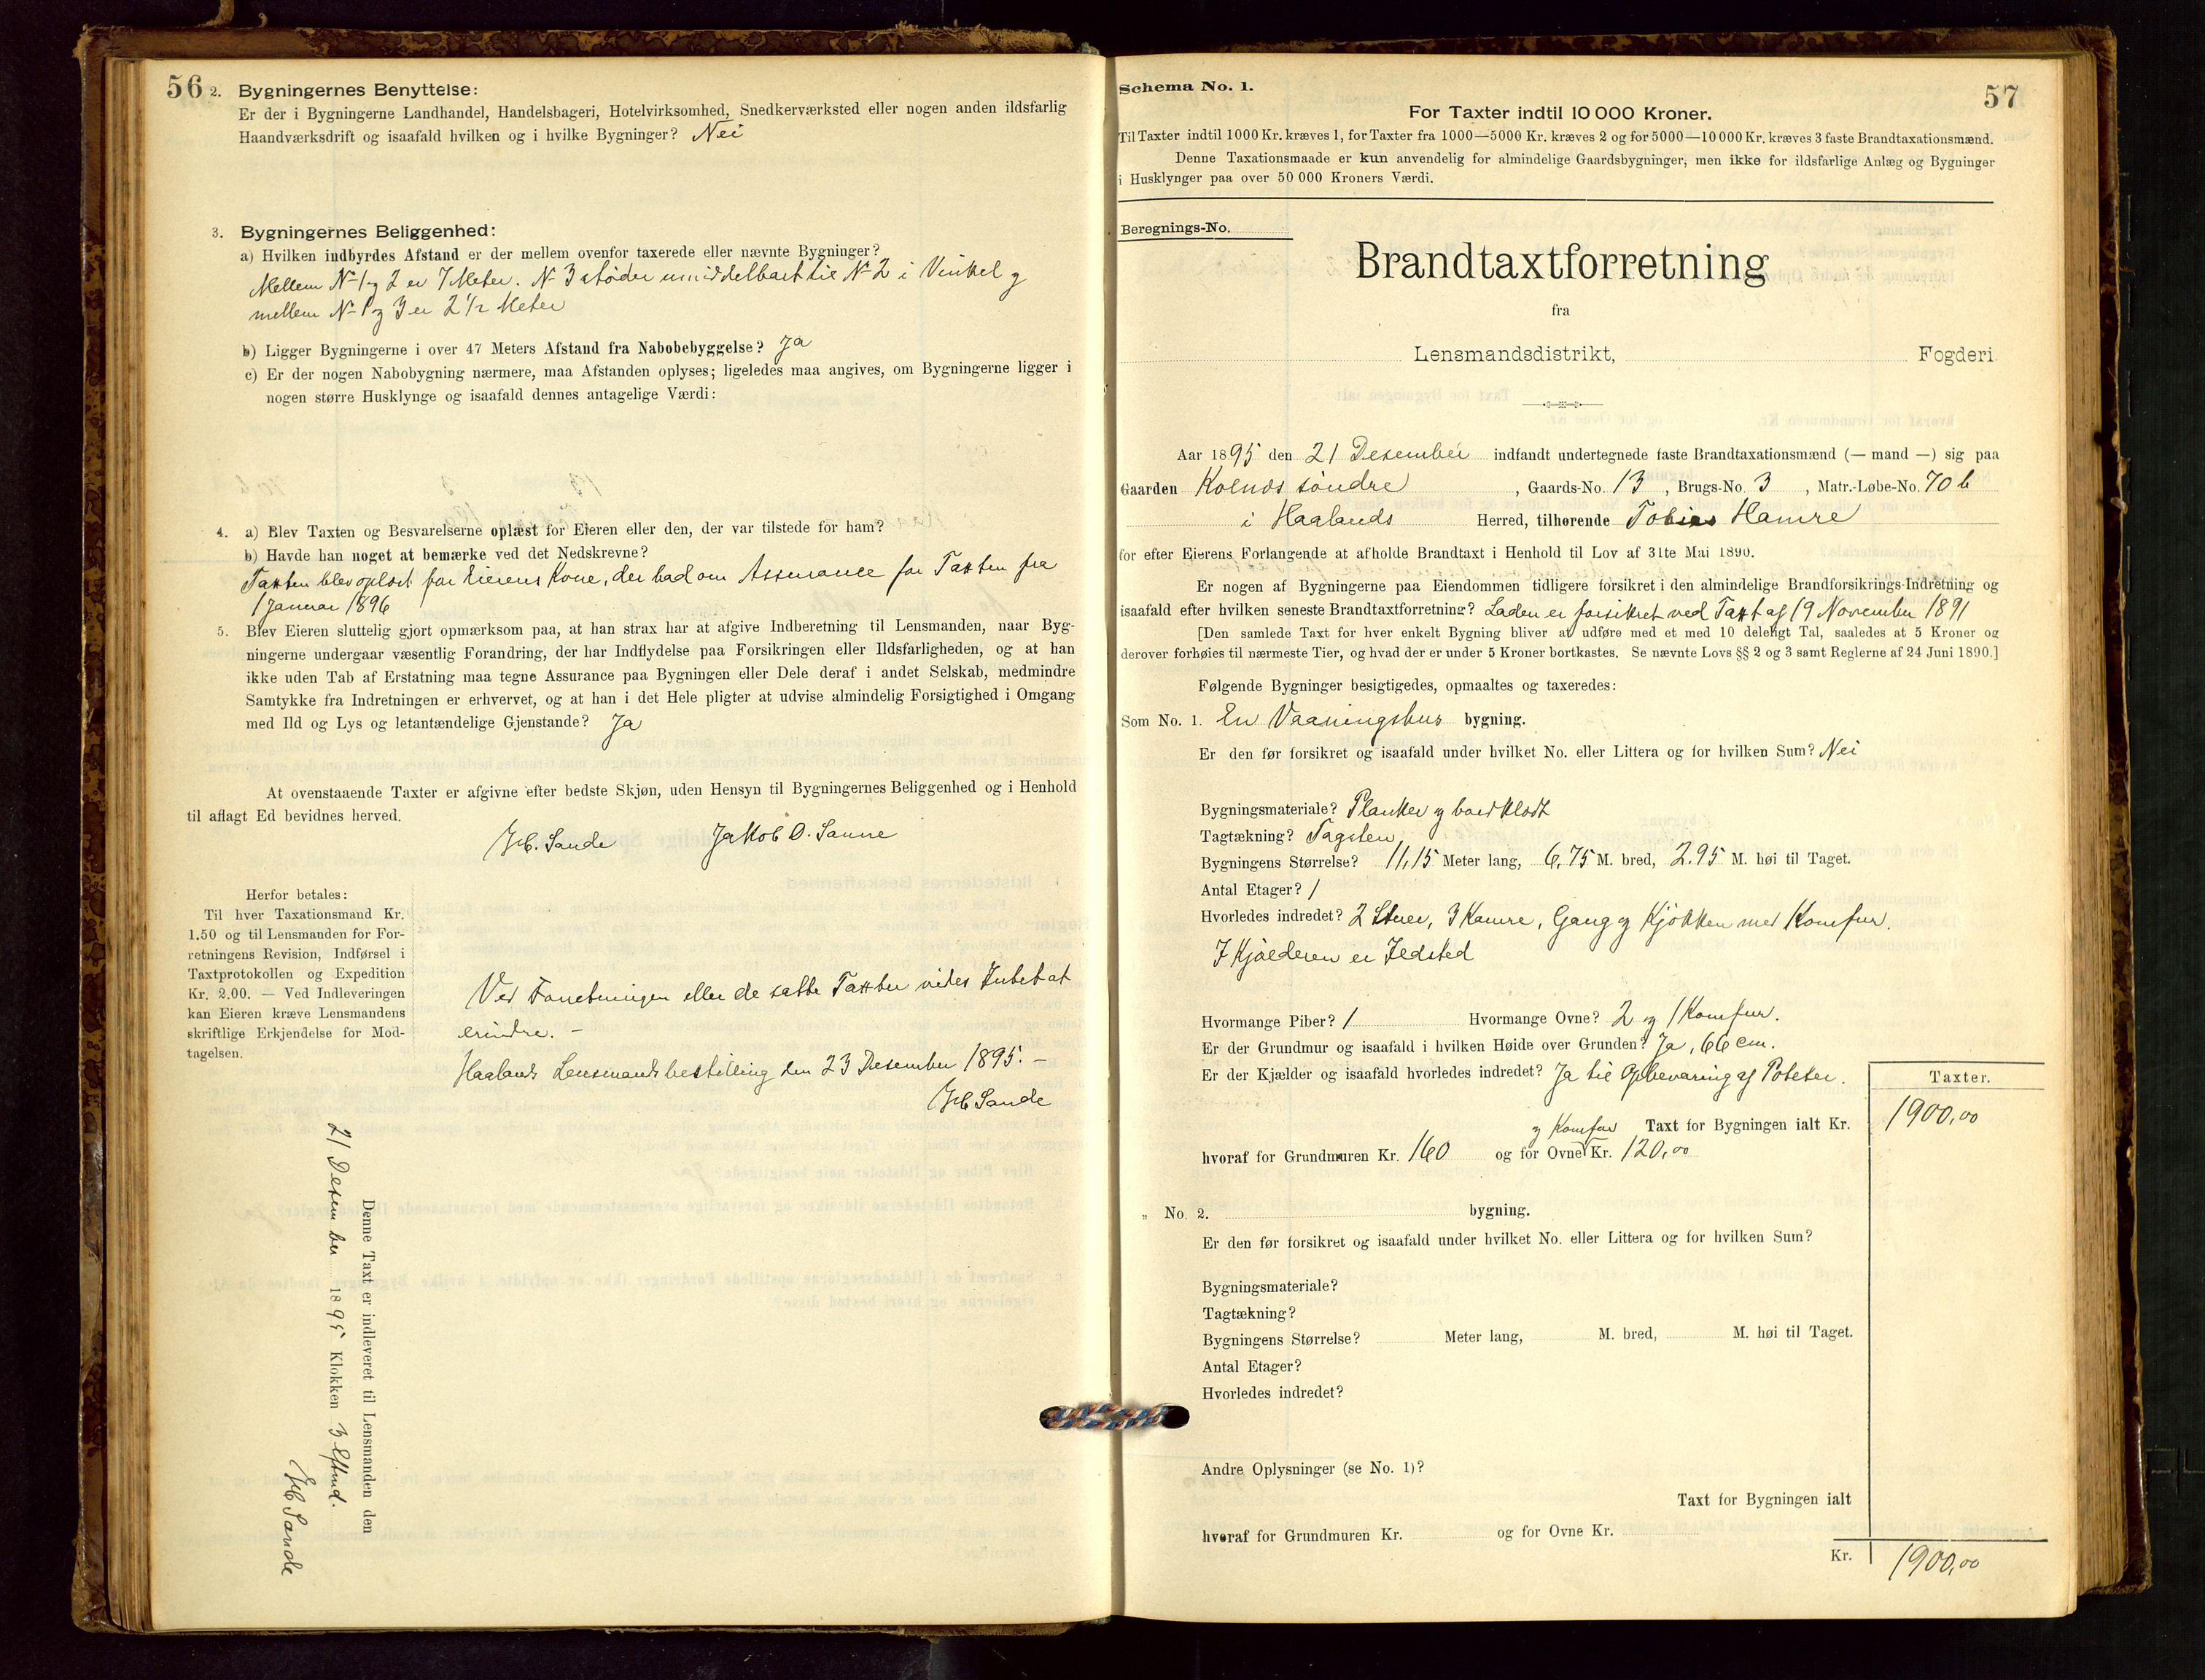 56
2. Bygningernes Benyttelse:
Er der i Bygningerne Landhandel, Handelsbageri, Hotelvirksomhed, Snedkerværksted eller nogen anden ildsfarlig
Haandværksdrift og isaafald hvilken og i hvilke Bygninger? Nei
3. Bygningernes Beliggenhed:
a) Hvilken indbyrdes Afstand er der mellem ovenfor taxerede eller nævnte Bygninger?
Mellem No 1 og 2 er 7 Meter. No 3 støder umiddelbart til No 2 i Vinkel og
mellem No 1 og 3 er 2 1/2 Meter
b) Ligger Bygningerne i over 47 Meters Afstand fra Nabobebyggelse? Ja
c) Er der nogen Nabobygning nærmere, maa Afstanden oplyses; ligeledes maa angives, om Bygningerne ligger i
nogen større Husklynge og isaafald dennes antagelige Værdi:
4. a) Blev Taxten og Besvarelserne oplæst for Eieren eller den, der var tilstede for ham?
b) Havde han noget at bemærke ved det Nedskrevne?
Taxten blev oplæst for Eierens Kone, der bad om Assurance for Taxten fra
1 Januar 1896
5. Blev Eieren sluttelig gjort opmærksom paa, at han strax har at afgive Indberetning til Lensmanden, naar Byg-
ningerne undergaar væsentlig Forandring, der har Indflydelse paa Forsikringen eller Ildsfarligheden, og at han
ikke uden Tab af Erstatning maa tegne Assurance paa Bygningen eller Dele deraf i andet Selskab, medmindre
Samtykke fra Indretningen er erhvervet, og at han i det Hele pligter at udvise almindelig Forsigtighed i Omgang
med Ild og Lys og letantændelige Gjenstande? Ja
At ovenstaaende Taxter er afgivne efter bedste Skjøn, uden Hensyn til Bygningernes Beliggenhed og i Henhold
til aflagt Ed bevidnes herved.
Sande Jakob O. Sanne
Herfor betales:
Til hver Taxationsmand Kr.
1.50 og til Lensmanden for For-
retningens Revision, Indførsel i
Taxtprotokollen og Expedition
Kr. 2.00. — Ved Indleveringen
kan Eieren kræve Lensmandens
skriftlige Erkjendelse for Mod-
tagelsen.
Ved Forretningen eller de satte Taxter vides Intet at
erindre. -
Haalands Lensmandsbestilling den 23 Desember 1895. -
Sande
Denne Taxt er indleveret til Lensmanden den
21 Desember 1895 Klokken 3 Eftmd.
Sande
57
Schema No. 1.
For Taxter indtil 10 000 Kroner.
Til Taxter indtil 1000 Kr. kræves 1, for Taxter fra 1000—5000 Kr. kræves 2 og for 5000—10 000 Kr. kræves 3 faste Brandtaxationsmænd.
Denne Taxationsmaade er kun anvendelig for almindelige Gaardsbygninger, men ikke for ildsfarlige Anlæg og Bygninger
i Husklynger paa over 50 000 Kroners Værdi.
Beregnings-No.
Brandtaxtforretning
fra
Lensmandsdistrikt, Fogderi.
Aar 1895 den 21 Desember indfandt undertegnede faste Brandtaxationsmænd (— mand —) sig paa
Gaarden Kolnes söndre, Gaards-No. 13, Brugs-No. 3, Matr.-Løbe-No. 70 b
i Haalands Herred, tilhørende Tobias Hamre
for efter Eierens Forlangende at afholde Brandtaxt i Henhold til Lov af 31te Mai 1890.
Er nogen af Bygningerne paa Eiendommen tidligere forsikret i den almindelige Brandforsikrings-Indretning og
isaafald efter hvilken seneste Brandtaxtforretning? Laden er forsikret ved Taxt af 19 November 1891
[Den samlede Taxt for hver enkelt Bygning bliver at udføre med et med 10 deleligt Tal, saaledes at 5 Kroner og
derover forhøies til nærmeste Tier, og hvad der er under 5 Kroner bortkastes. Se nævnte Lovs §§ 2 og 3 samt Reglerne af 24 Juni 1890.]
Følgende Bygninger besigtigedes, opmaaltes og taxeredes:
Som No. 1. En Vaaningshus bygning.
Er den før forsikret og isaafald under hvilket No. eller Littera og for hvilken Sum? Nei
Bygningsmateriale? Planker og bordklædt
Tagtækning? Tagsten
Bygningens Størrelse? 11,15 Meter lang, 6,75 M. bred, 2.95 M. høi til Taget.
Antal Etager? 1
Hvorledes indredet? 2 Stuer, 3 Kamre, Gang og Kjøkken med Komfur.
I Kjælderen er Ildsted
Hvormange Piber? 1 Hvormange Ovne? 2 og 1 Komfur.
Er der Grundmur og isaafald i hvilken Høide over Grunden? Ja, 66 cm.
Er der Kjælder og isaafald hvorledes indredet? Ja til Opbevaring af Poteter.
Taxter.
og Komfur Taxt for Bygningen ialt Kr. 1900,00
hvoraf for Grundmuren Kr. 160 og for Ovne Kr. 120,00
„ No. 2. bygning.
Er den før forsikret og isaafald under hvilket No. eller Littera og for hvilken Sum?
Bygningsmateriale?
Tagtækning?
Bygningens Størrelse? Meter lang, M. bred, M. høi til Taget.
Antal Etager?
Hvorledes indredet?
Andre Oplysninger (se No. 1)?
Taxt for Bygningen ialt
hvoraf for Grundmuren Kr. og for Ovne Kr.
Kr. 1900,00